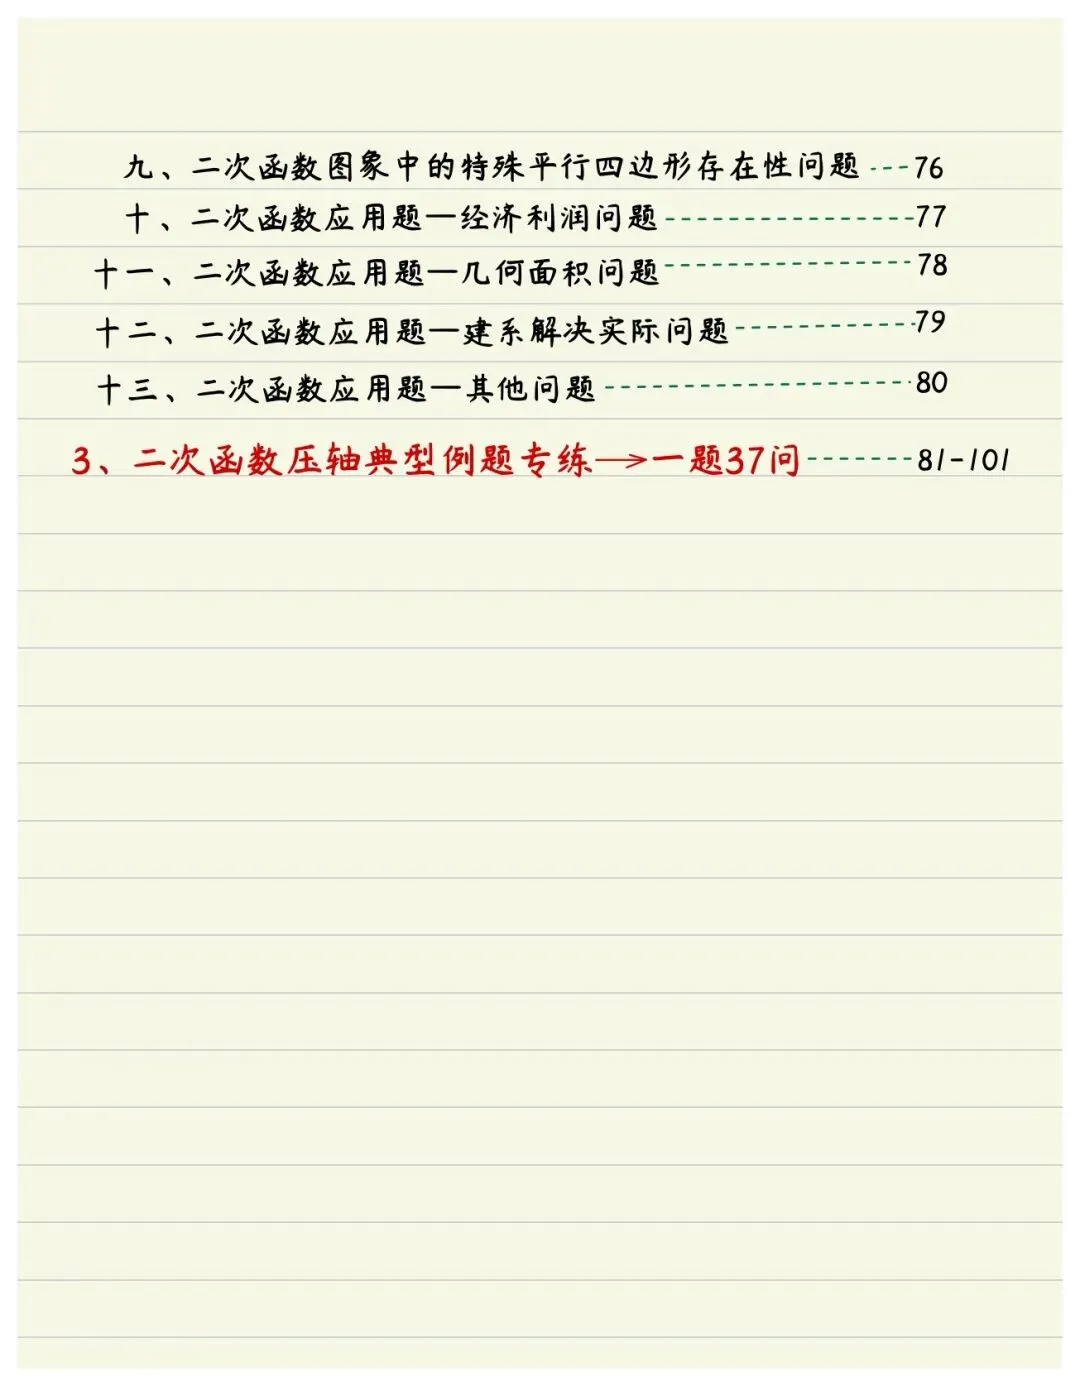 九、二次函数图象中的特殊平行四边形存在性问题----76
十、二次函数应用题—经济利润问题----------------77
十一、二次函数应用题—几何面积问题----------------78
十二、二次函数应用题—建系解决实际问题------------79
十三、二次函数应用题—其他问题--------------------80
3、二次函数压轴典型例题专练→一题37问-------81-101